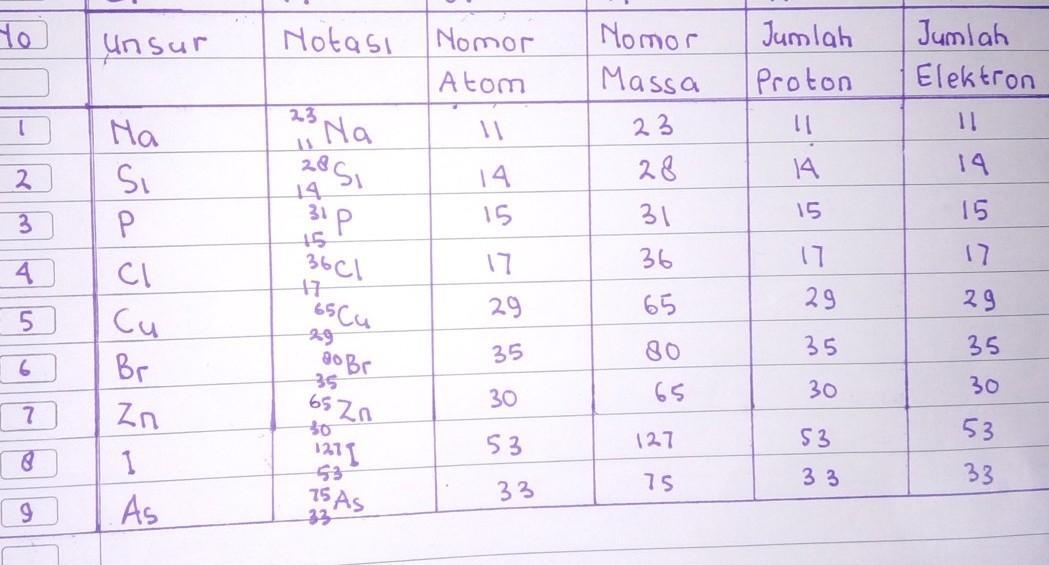 No Unsur Notasi Nomor Atom Nomor Massa Jumlah Proton Jumlah Elektron
1 Na 23 11 Na 11 23 11 11
2 Si 28 14 Si 14 28 14 14
3 P 31 15 P 15 31 15 15
4 Cl 36 17 Cl 17 36 17 17
5 Cu 65 29 Cu 29 65 29 29
6 Br 80 35 Br 35 80 35 35
7 Zn 65 30 Zn 30 65 30 30
8 I 127 53 I 53 127 53 53
9 As 75 33 As 33 75 33 33